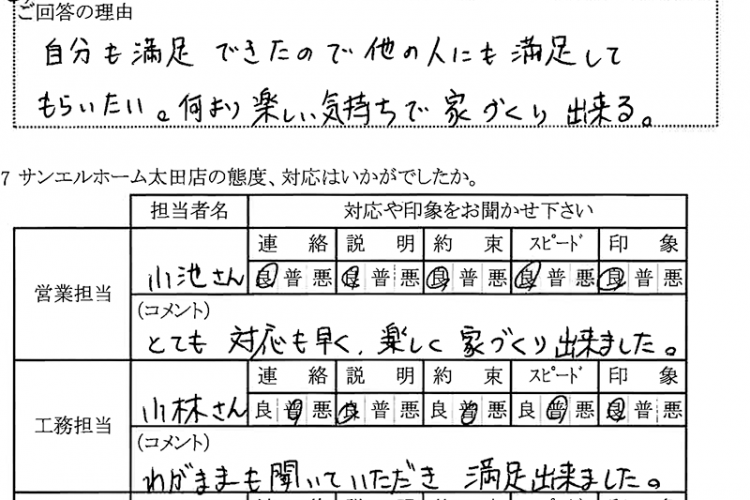 ご回答の理由
自分も満足できたので他の人にも満足して
もらいたい。何より楽しい気持ちで家づくり出来る。
7 サンエルホーム太田店の態度、対応はいかがでしたか。
担当者名 対応や印象をお聞かせ下さい
連絡 説明 約束 スピード 印象
営業担当 小池さん 良 普 悪 良 普 悪 良 普 悪 良 普 悪 良 普 悪
(コメント)
とても対応も早く、楽しく家づくり出来ました。
連絡 説明 約束 スピード 印象
工務担当 小林さん 良 普 悪 良 普 悪 良 普 悪 良 普 悪 良 普 悪
(コメント)
わがままも聞いていただき満足出来ました。